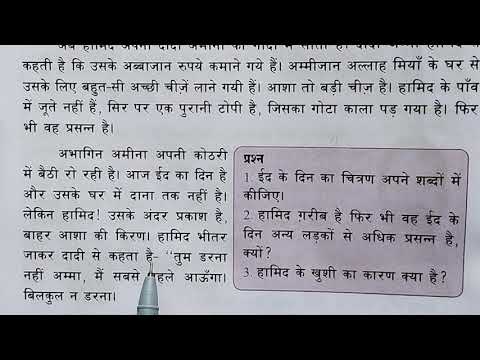 अब हामिद अपनी दादी अमीना की गोदी में सोता है।
कहती है कि उसके अब्बाजान रुपये कमाने गये हैं। अम्मीजान अल्लाह मियाँ के घर से
उसके लिए बहुत-सी अच्छी चीज़ें लाने गयी हैं। आशा तो बड़ी चीज़ है। हामिद के पाँव
में जूते नहीं हैं, सिर पर एक पुरानी टोपी है, जिसका गोटा काला पड़ गया है। फिर
भी वह प्रसन्न है।
अभागिन अमीना अपनी कोठरी
में बैठी रो रही है। आज ईद का दिन है
और उसके घर में दाना तक नहीं है।
लेकिन हामिद! उसके अंदर प्रकाश है,
बाहर आशा की किरण। हामिद भीतर
जाकर दादी से कहता है- ‘‘तुम डरना
नहीं अम्मा, मैं सबसे पहले आऊँगा।
बिलकुल न डरना।
प्रश्न
1. ईद के दिन का चित्रण अपने शब्दों में
कीजिए।
2. हामिद ग़रीब है फिर भी वह ईद के
दिन अन्य लड़कों से अधिक प्रसन्न है,
क्यों?
3. हामिद के खुशी का कारण क्या है?